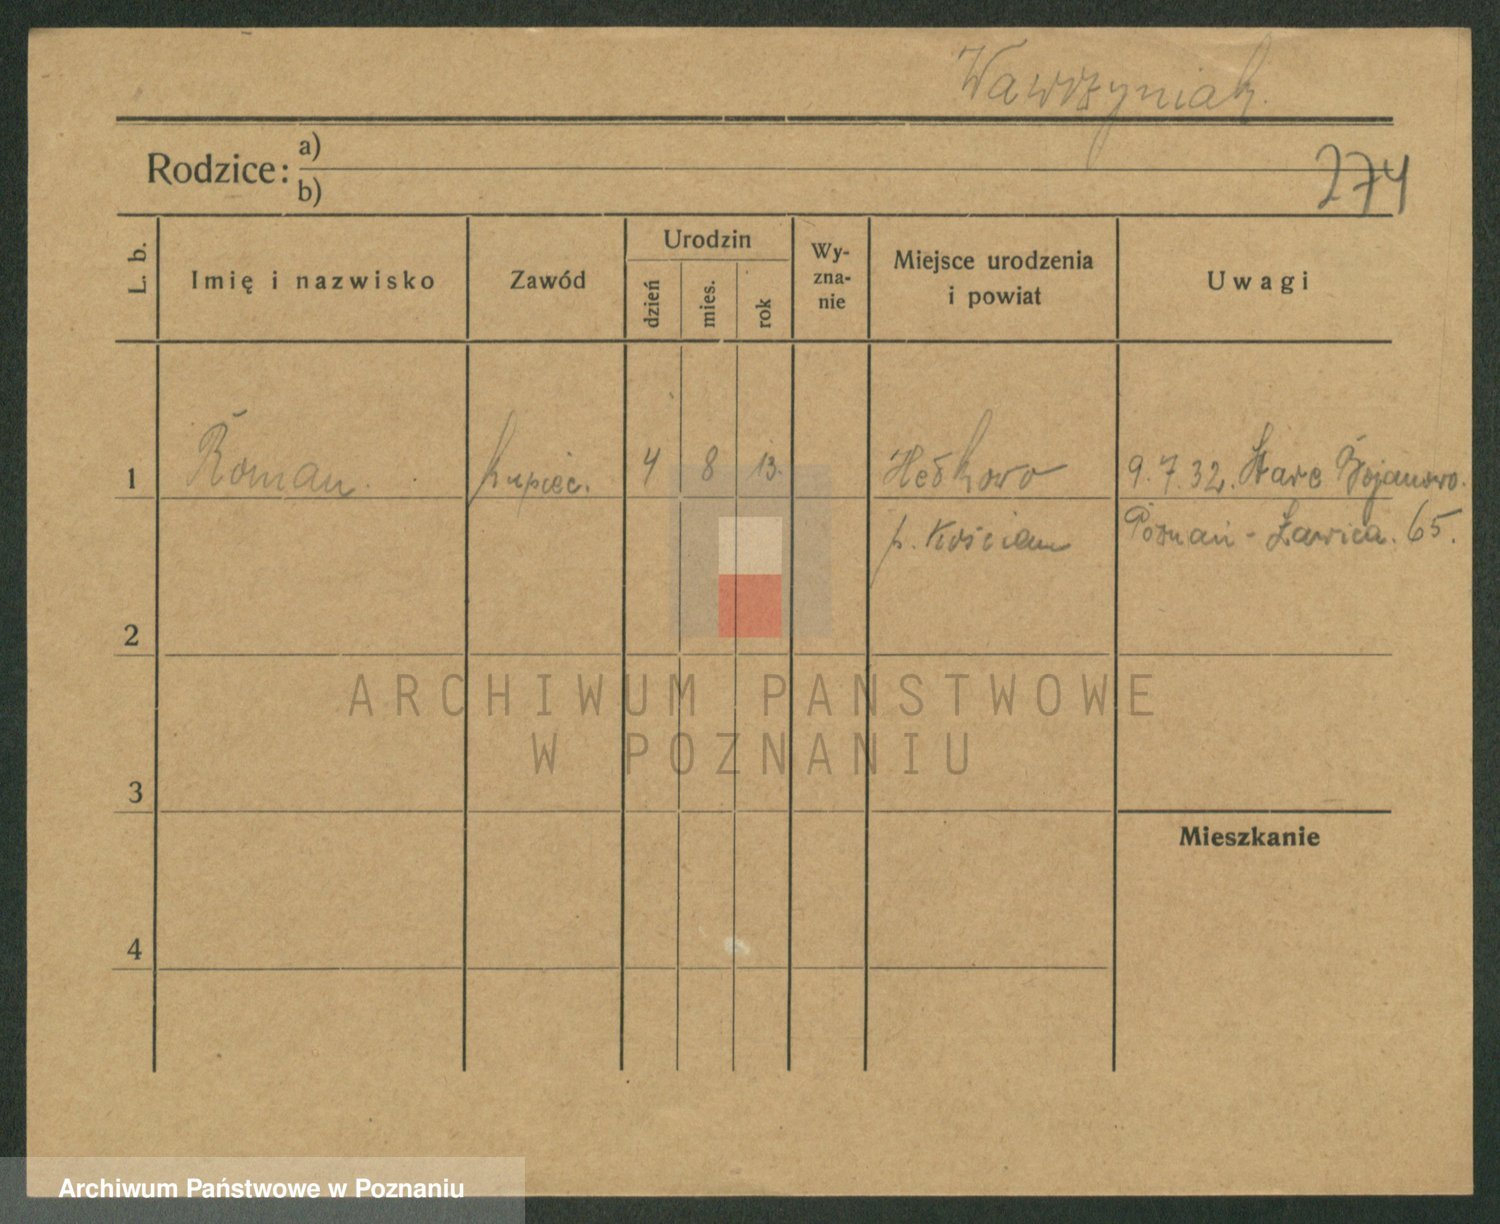 Wawrzyniak.
Rodzice: a)
b)
274
L. b.
Imię i nazwisko
Zawód
Urodzin
dzień
mies.
rok
Wy-
zna-
nie
Miejsce urodzenia
i powiat
Uwagi
1 Roman. kupiec. 4 8 13. 9.7.32. Stare Bojanowo.
p. Kościan Poznań - Ławica. 65.
2
3
Mieszkanie
4
ARCHIWUM PAŃSTWOWE
W POZNANIU
Archiwum Państwowe w Poznaniu